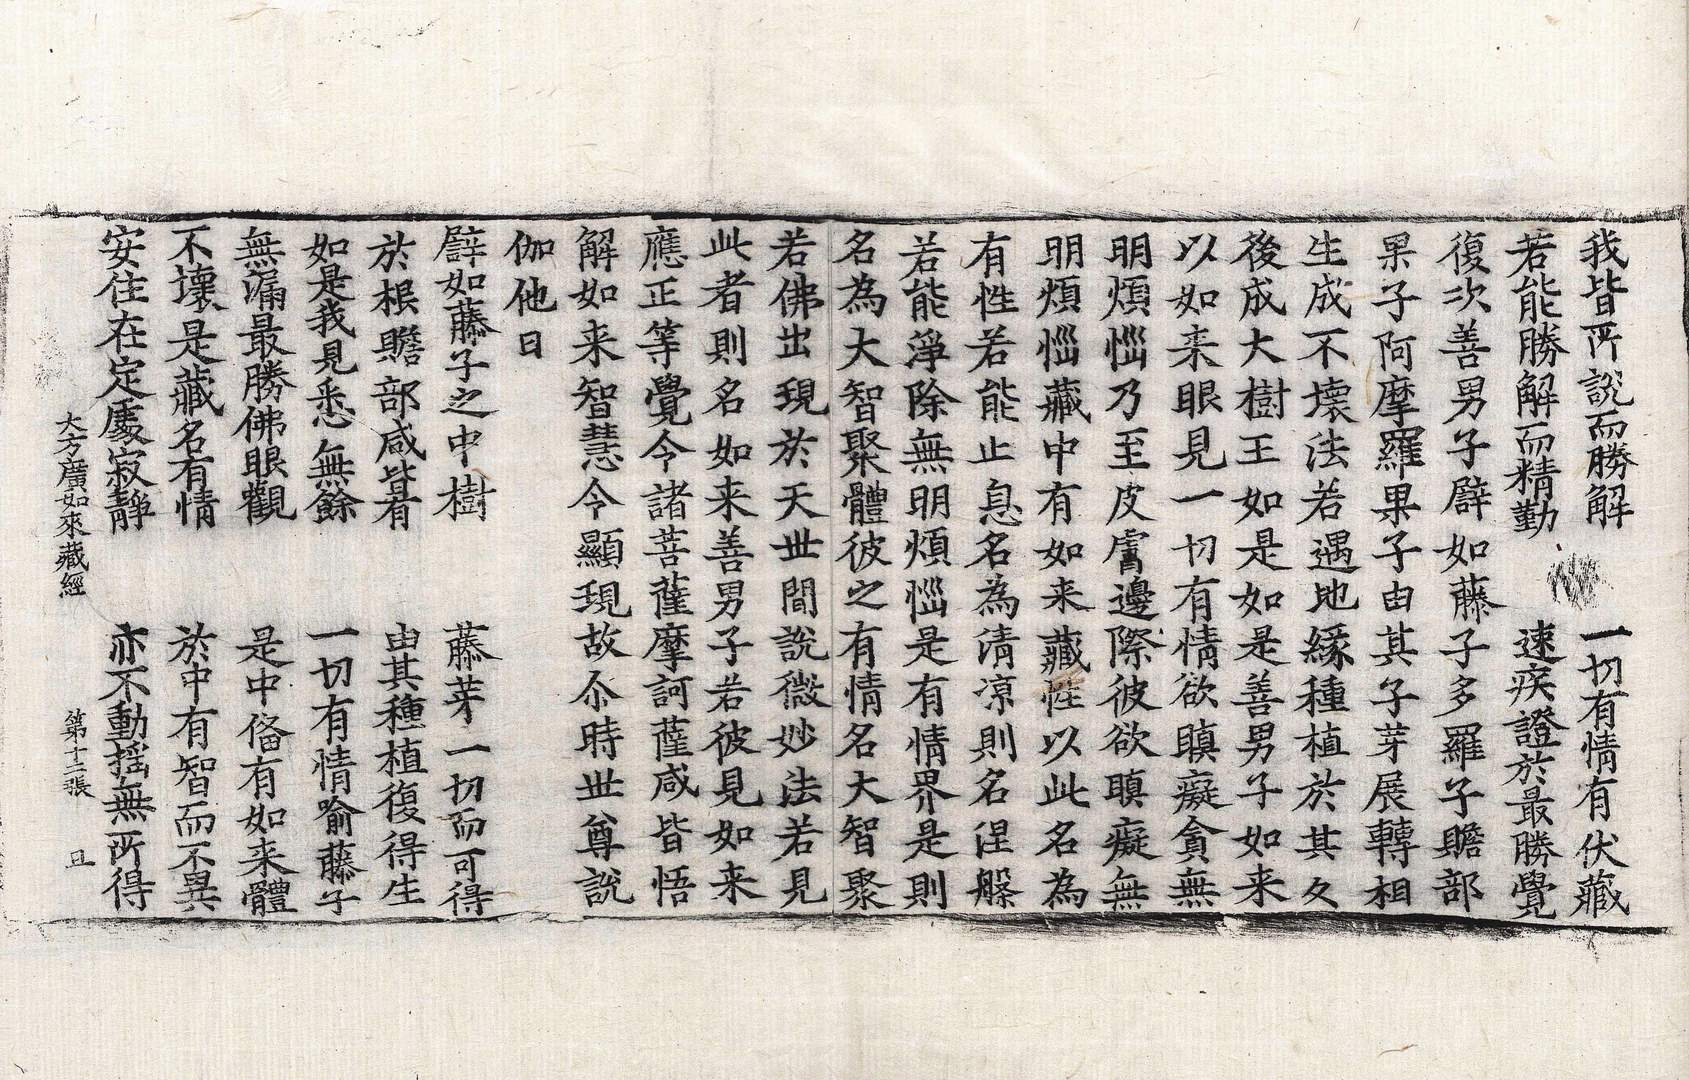 我皆所說而勝解　一切有情有伏藏
若能勝解而精勤　速疾證於最勝覺
復次善男子辟如藤子多羅子贍部
果子阿摩羅果子由其子芽展轉相
生成不壞法若遇地緣種植於其久
後成大樹王如是如是善男子如来
以如来眼見一切有情欲瞋癡貪無
明煩惱乃至皮膚邊際彼欲瞋癡無
明煩惱藏中有如来藏性以此名為
有性若能止息名為清凉則名涅槃
若能淨除無明煩惱是有情界是則
名為大智聚體彼之有情名大智聚
若佛出現於天世間說微妙法若見
此者則名如来善男子若彼見如来
應正等覺令諸菩薩摩訶薩咸皆悟
解如来智慧令顯現故尒時世尊說
伽他曰
辟如藤子之中樹　藤芽一切而可得
於根贍部咸皆有　由其種植復得生
如是我見悉無餘　一切有情喻藤子
無漏最勝佛眼觀　是中俻有如来體
不壞是藏名有情　於中有智而不異
安住在定處寂靜　亦不動揺無所得
大方廣如來藏經　第十二張